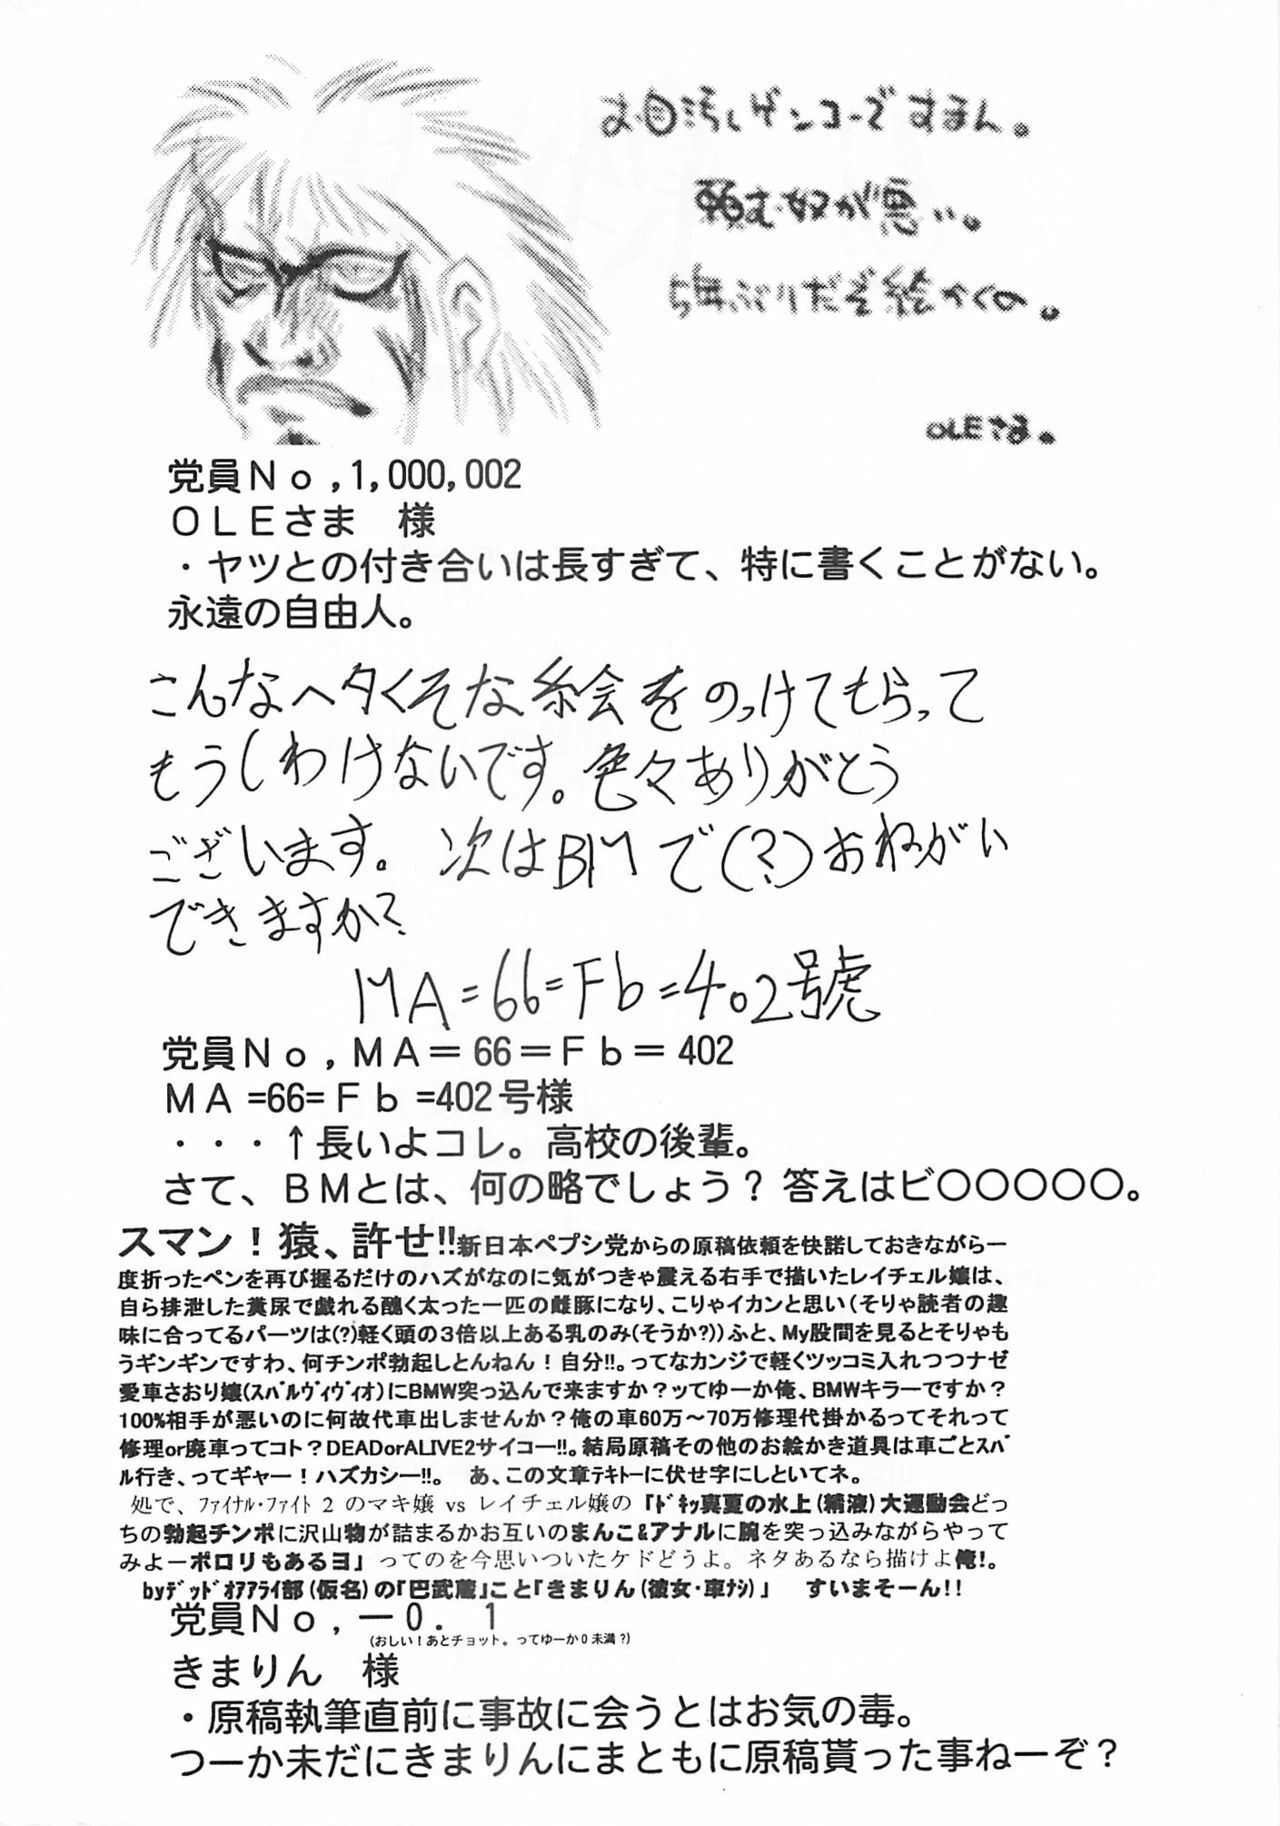 お目汚しゲンコーですまん。
頼む奴が悪い。
5年ぶりだぞ絵かくの。
OLEさま。
党員Ｎｏ,1,000,002
ＯＬＥさま　様
・ヤツとの付き合いは長すぎて、特に書くことがない。
永遠の自由人。
こんなヘタくそな絵をのっけてもらって
もうしわけないです。色々ありがとう
ございます。次はBMで(?)おねがい
できますか?
MA=66=Fb=402号虎
党員Ｎｏ,ＭＡ＝66＝Ｆｂ＝402
ＭＡ=66=Ｆｂ=402号様
・・・↑長いよコレ。高校の後輩。
さて、ＢＭとは、何の略でしょう？答えはビ〇〇〇〇〇。
スマン！猿、許せ!!新日本ペプシ党からの原稿依頼を快諾しておきながら一
度折ったペンを再び握るだけのハズがなのに気がつきゃ震える右手で描いたレイチェル嬢は、
自ら排泄した糞尿で戯れる醜く太った一匹の雌豚になり、こりゃイカンと思い(そりゃ読者の趣
味に合ってるパーツは(?)軽く頭の３倍以上ある乳のみ(そうか?))ふと、My股間を見るとそりゃも
うギンギンですわ、何チンポ勃起しとんねん！自分!!。ってなカンジで軽くツッコミ入れつつナゼ
愛車さおり嬢(ｽﾊﾞﾙヴｨヴｨｵ)にBMW突っ込んで来ますか？ッてゆーか俺、BMWキラーですか？
100%相手が悪いのに何故代車出しませんか？俺の車60万～70万修理代掛かるってそれって
修理or廃車ってコト？DEADorALIVE2サイコー!!。結局原稿その他のお絵かき道具は車ごとｽﾊﾞ
ﾙ行き、ってギャー！ハズカシー!!。　あ、この文章ﾃｷﾄｰに伏せ字にしといてネ。
処で、ﾌｧｲﾅﾙ･ﾌｧｲﾄ２のマキ嬢 vs レイチェル嬢の「ﾄﾞｷｯ真夏の水上(精液)大運動会どっ
ちの勃起チンポに沢山物が詰まるかお互いのまんこ&アナルに腕を突っ込みながらやって
みよーポロリもあるヨ」ってのを今思いついたケドどうよ。ネタあるなら描けよ俺!。
byﾃﾞｯﾄﾞｵｱｱﾗｲ部(仮名)の「巴武蔵」こと「きまりん(彼女･車ﾅｼ)」　すいませそーん!!
党員Ｎｏ,－０．１
(おしい！あとチョット。ってゆーか０未満？)
きまりん　様
・原稿執筆直前に事故に会うとはお気の毒。
つーか未だにきまりんにまともに原稿貰った事ねーぞ？